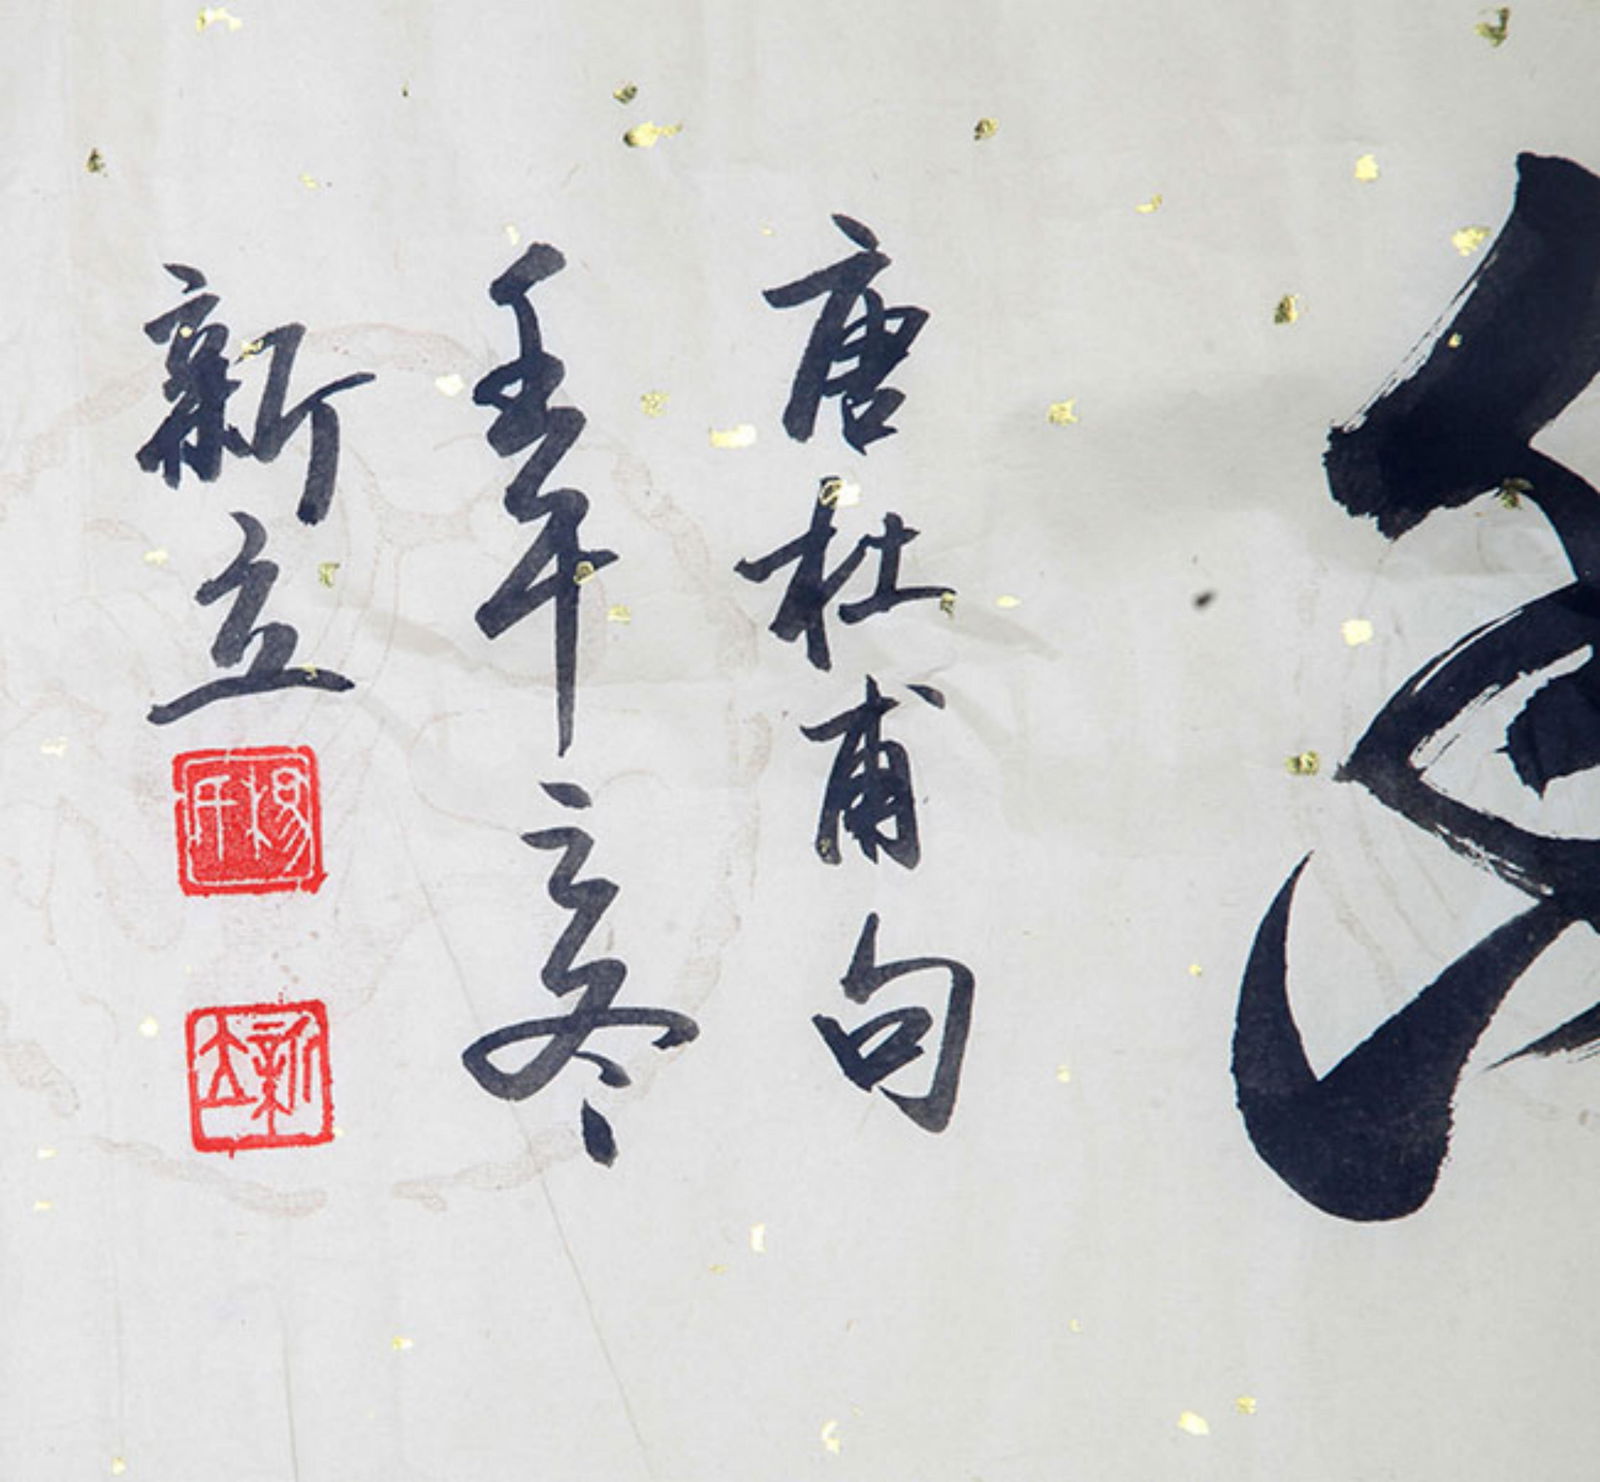 唐杜甫句
壬午立冬
新立
新立